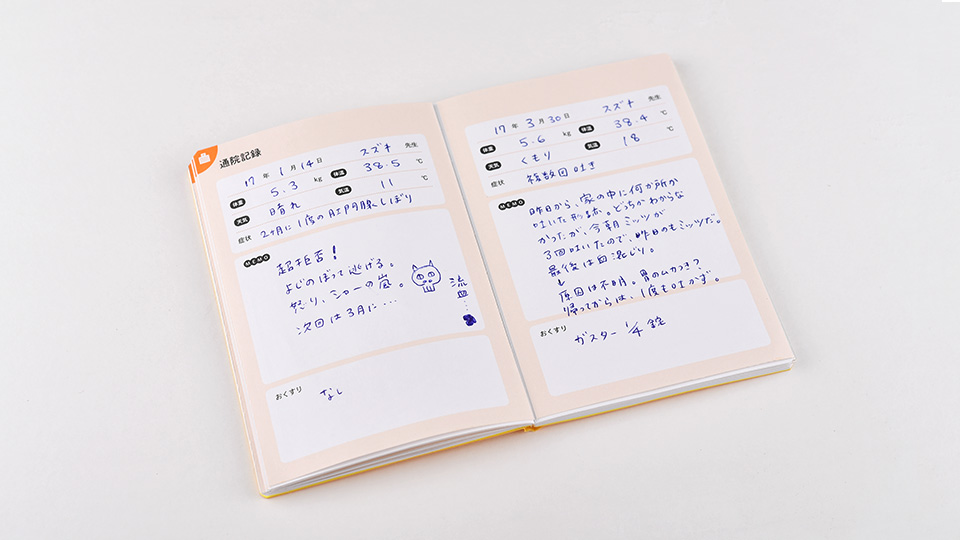 通院記録
17 年 1 月 14 日 スズキ 先生
体重 5.3 kg 体温 38.5 ℃
天気 晴れ 気温 11 ℃
症状 2ヶ月に1度の肛門腺しぼり
MEMO
超拒否!
よじのぼって逃げる。
怒り、シャーの嵐。
次回は3月に…
流血…
おくすり
なし
17 年 3 月 30 日 スズキ 先生
体重 5.6 kg 体温 38.4 ℃
天気 くもり 気温 18 ℃
症状 複数回吐き
MEMO
昨日から、家の中に何か所か
吐いた形跡。どっちかわからな
かったが、今朝ミッツが
3回吐いたので、昨日のもミッツだ。
最後は白混じり。
原因は不明。胃のムカつき?
帰ってからは、1度も吐かず。
おくすり
ガスター 1/4 錠